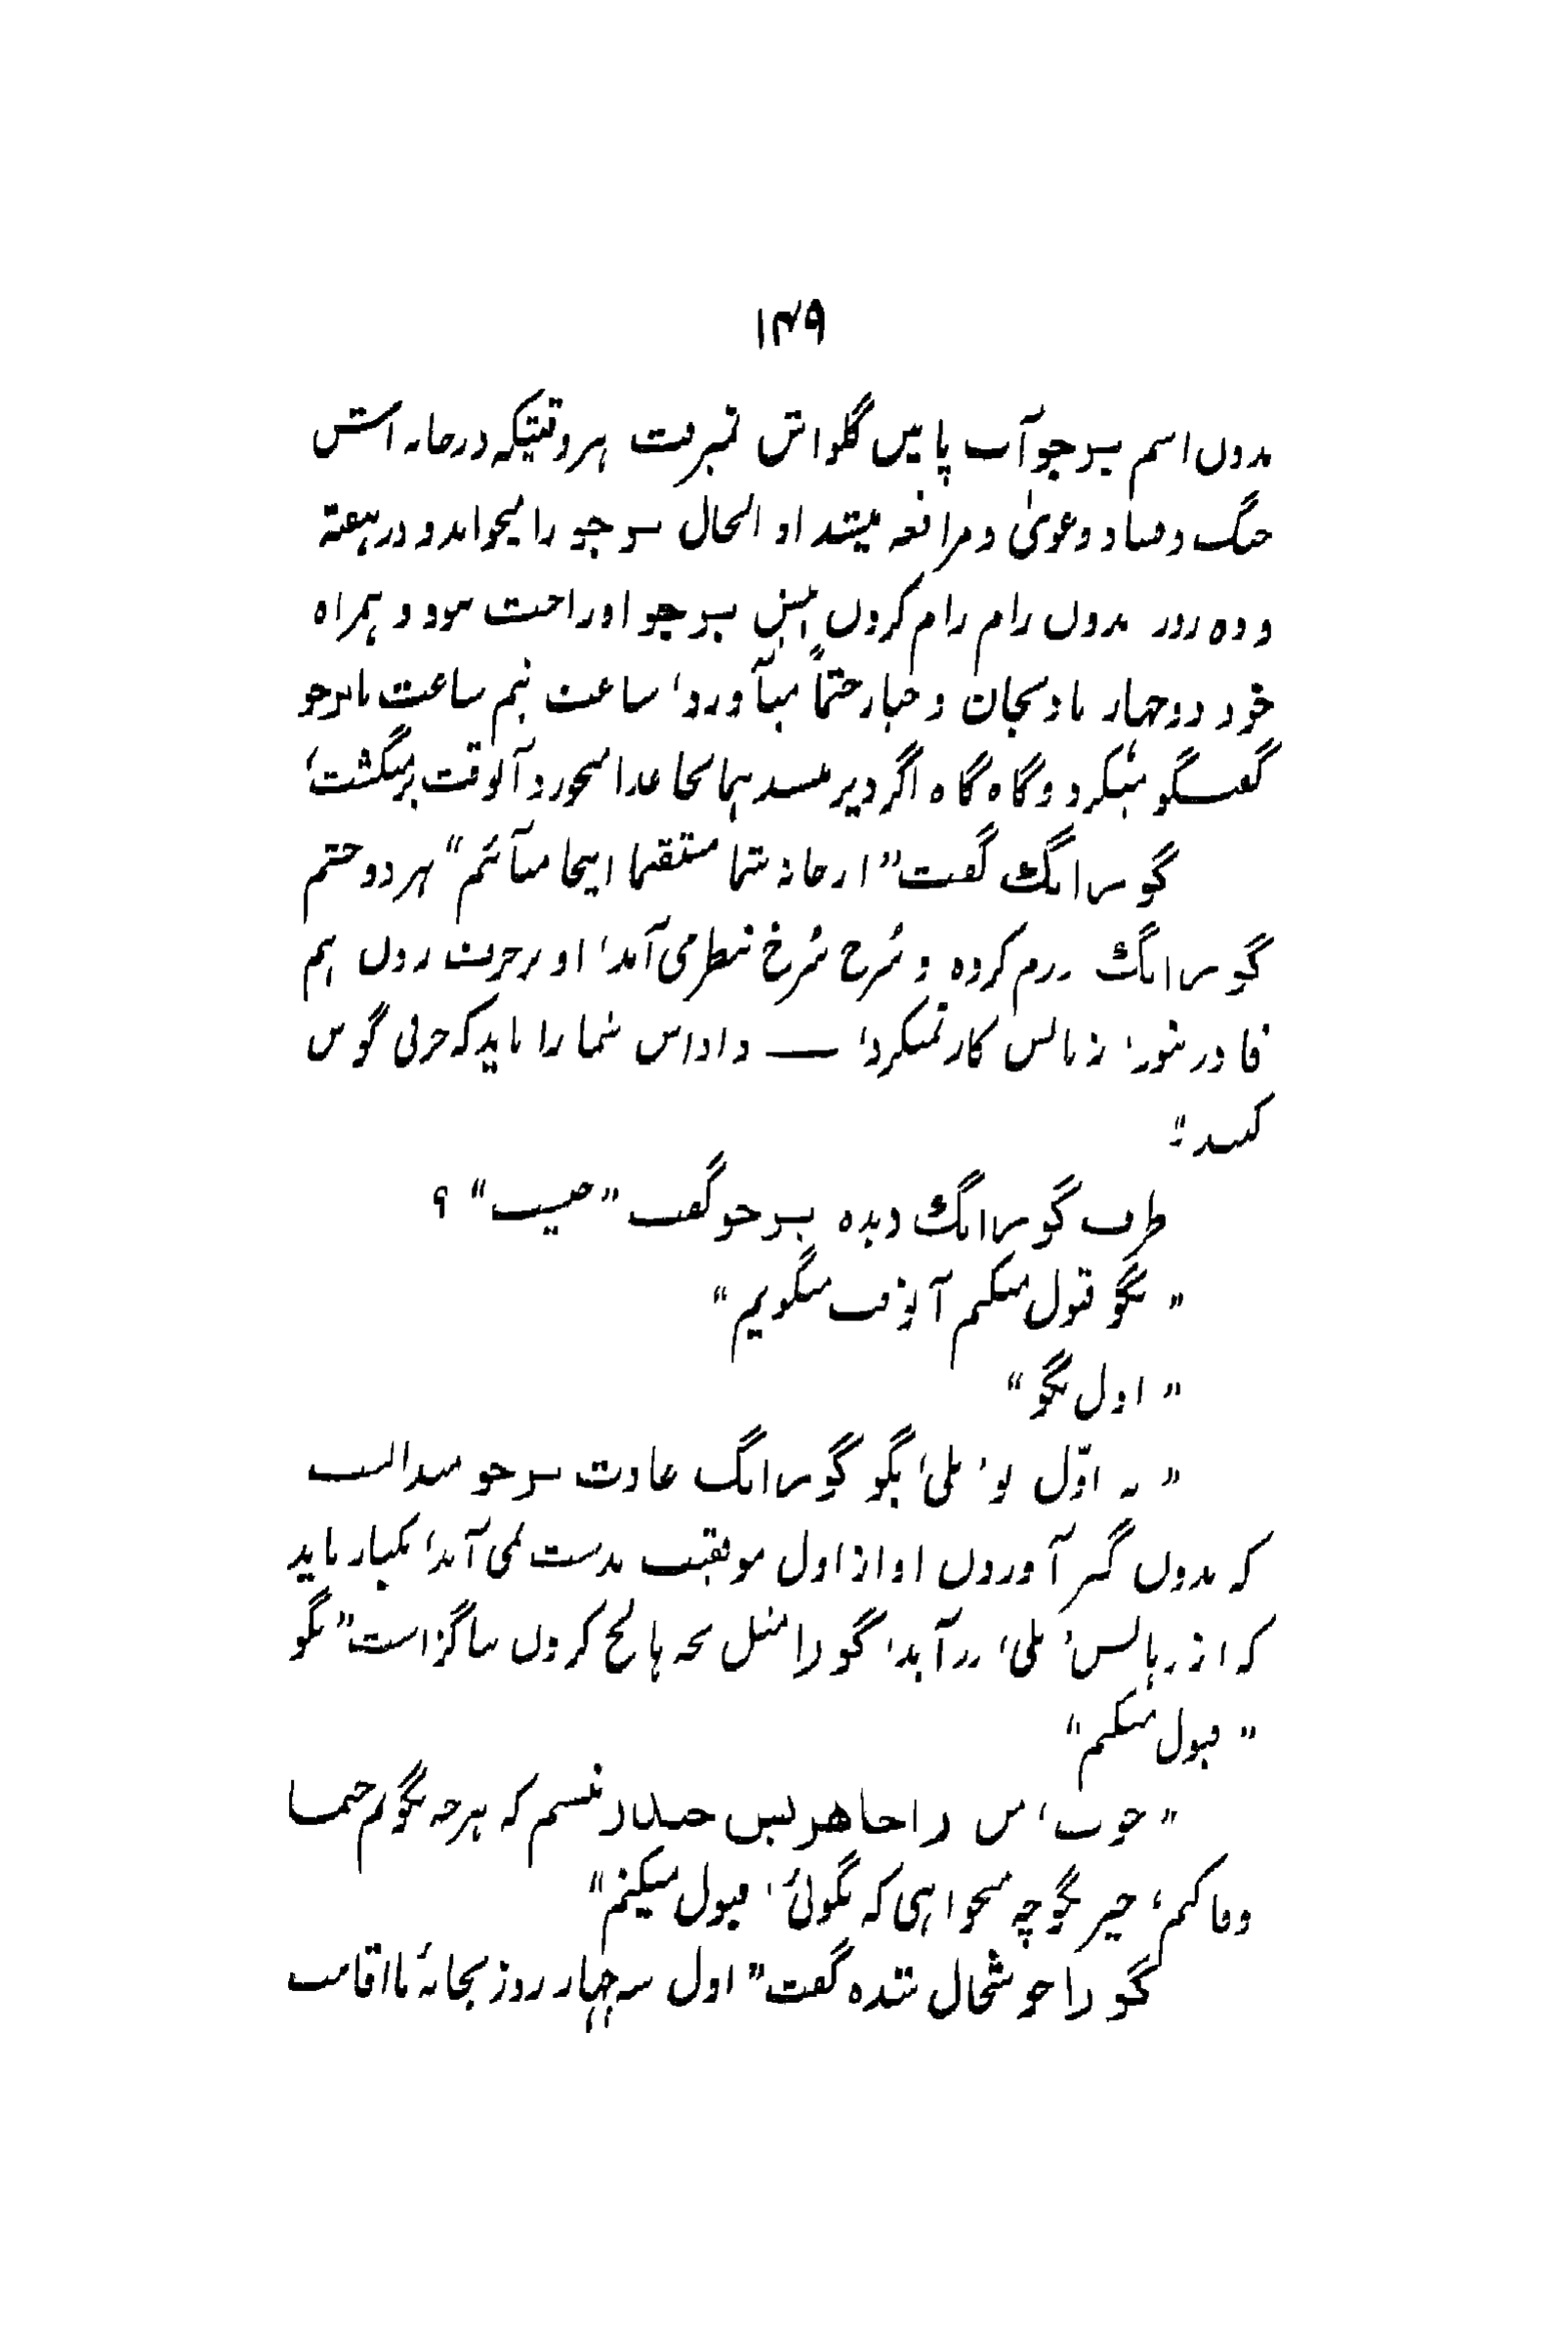 ۱۴۹
بدون اسم سرجو آب پایین گلواش نمیرفت هر وقتیکه در خانه اش
جنگ و فساد و دعویٰ و مرافعه میشد او الحال سرجو را میخواند و در هفته
و ده روز بدون رام رام کردن سرجو او راحت نبود و همراه
خود دو چهار بادنجان و خیار حتماً میآورد، ساعت نیم ساعت با سرجو
گفتگو میکرد و گاه گاه اگر دیر میشد همانجا غذا میخورد آنوقت برمیگشت،
گوسرانگ گفت "از خانه شما مستقیما اینجا میآئم" هر دو چشم
گوسرانگ ورم کرده و سُرخ سُرخ بنظر می آمد، او بر حرف زدن هم
قادر نبود، زبانش کار نمیکرد، — داداس شما را باید که حرفی گوش
کنید"
طرف گوسرانگ دیده سرجو گفت "چیست"؟
"بگو قبول میکنم آنوقت میگویم"
"اول بگو"
"نه اوّل تو، بلی، بگو گوسرانگ عادت سرجو میدانست
که بدون گیر آوردن او از اول موفقیت بدست نمی آمد، یکبار باید
که از زبانش، بلی، در آید، گو را مثل بچه ها کردن سازگار است" بگو
"قبول میکنم"
"خوب، من راجا هریش چندر نیستم که هر چه بگویم حتما
وفا کنم، خیر بگو چه میخواهی که بگوئی، قبول میکنم"
گو را خوشحال شده گفت" اول سه چهار روز بخانهٔ ما اقامت